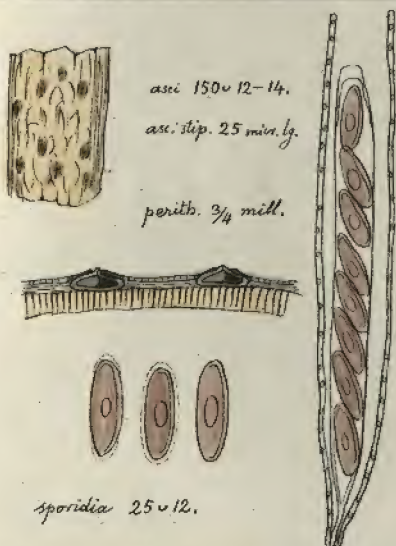 asci 150 ᴗ 12-14.
asc. stip. 25 micr. lg.
perith. 3/4 mill.
sporidia 25 ᴗ 12.